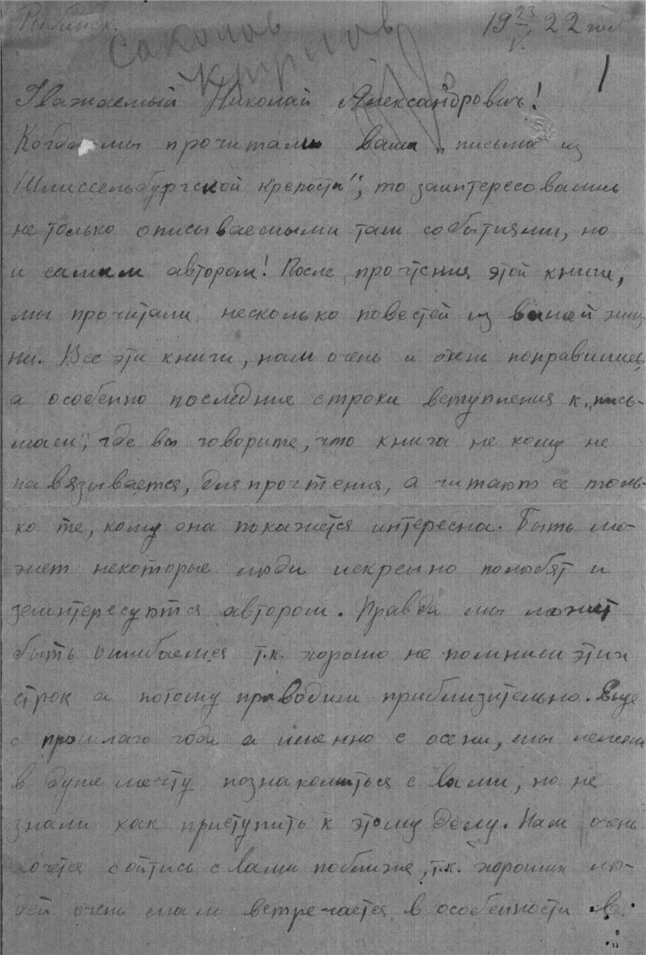 Рыбинск. 19 23/V 22 год
Соколов
Крылов
1
Уважаемый Николай Александрович!
Когда мы прочитали ваши „письма из
Шлиссельбургской крепости", то заинтересовались
не только описываемыми там событиями, но
и самим автором! После прочтения этой книги,
мы прочитали несколько повестей из вашей жиз
ни. Все эти книги, нам очень и очень понравились,
а особенно последние строки вступления к „пись-
мам", где вы говорите, что книга не кому не
навязывается, для прочтения, а читают ее толь-
ко те, кому она покажется интересна. Быть мо-
жет некоторые люди искренно полюбят и
заинтересуются автором. Правда мы может
быть ошибаемся т.к. хорошо не помним этих
строк а потому приводим приблизительно. Еще
с прошлаго года а именно с осени, мы лелеем
в душе мечту познакомиться с вами, но не
знали как приступить к этому делу. Нам очень
хочется сойтись с вами поближе, т.к. хороших лю-
дей очень мало встречается в особенности в